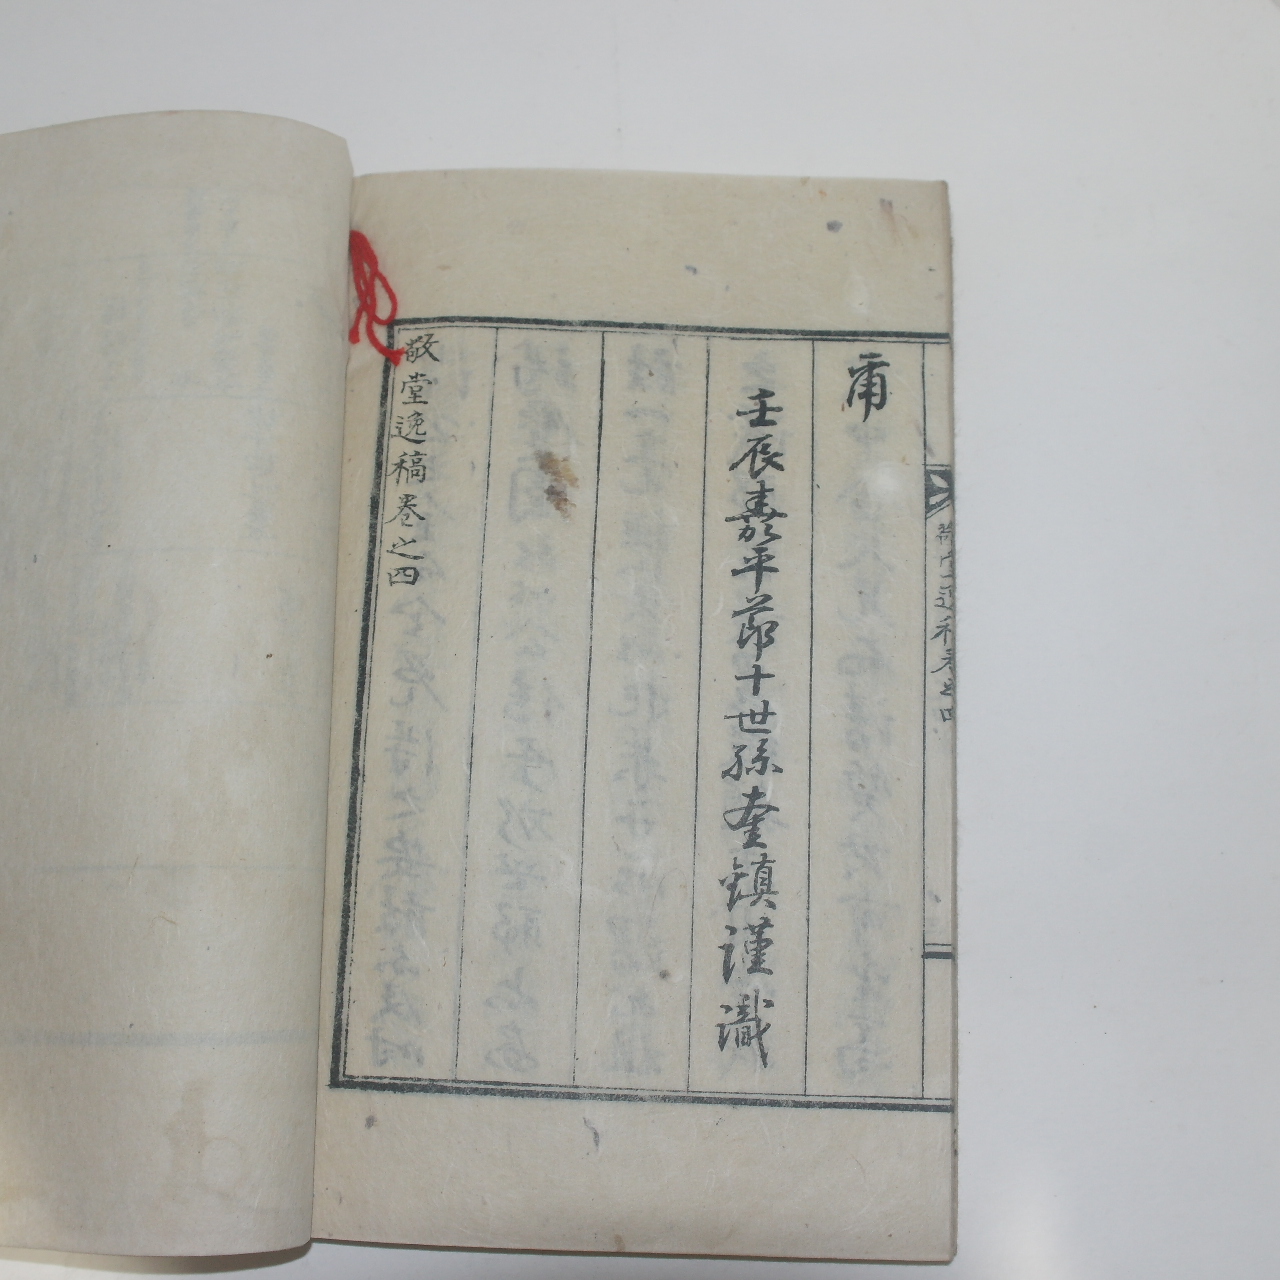 甭
壬辰嘉平節十世孫奎鎭謹識
敬堂逸稿卷之四